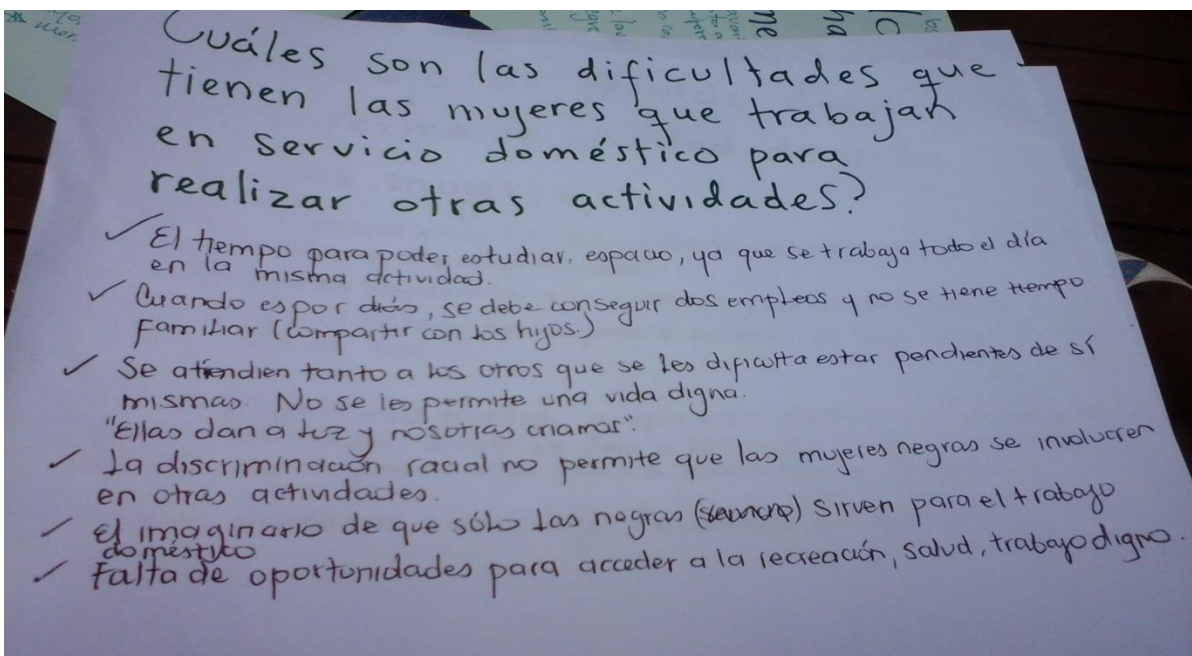 Cuáles son las dificultades que
tienen las mujeres que trabajan
en servicio doméstico para
realizar otras actividades?
✓ El tiempo para poder estudiar, espacio, ya que se trabaja todo el día
en la misma actividad.
✓ Cuando es por días, se debe conseguir dos empleos y no se tiene tiempo
Familiar (compartir con los hijos.)
✓ Se atiendien tanto a los otros que se les dificulta estar pendientes de sí
mismas. No se les permite una vida digna.
"Ellas dan a luz y nosotras criamos".
✓ La discriminación racial no permite que las mujeres negras se involucren
en otras actividades.
✓ El imaginario de que sólo las negras sirven para el trabajo
doméstico
✓ Falta de oportunidades para acceder a la recreación, salud, trabajo digno.